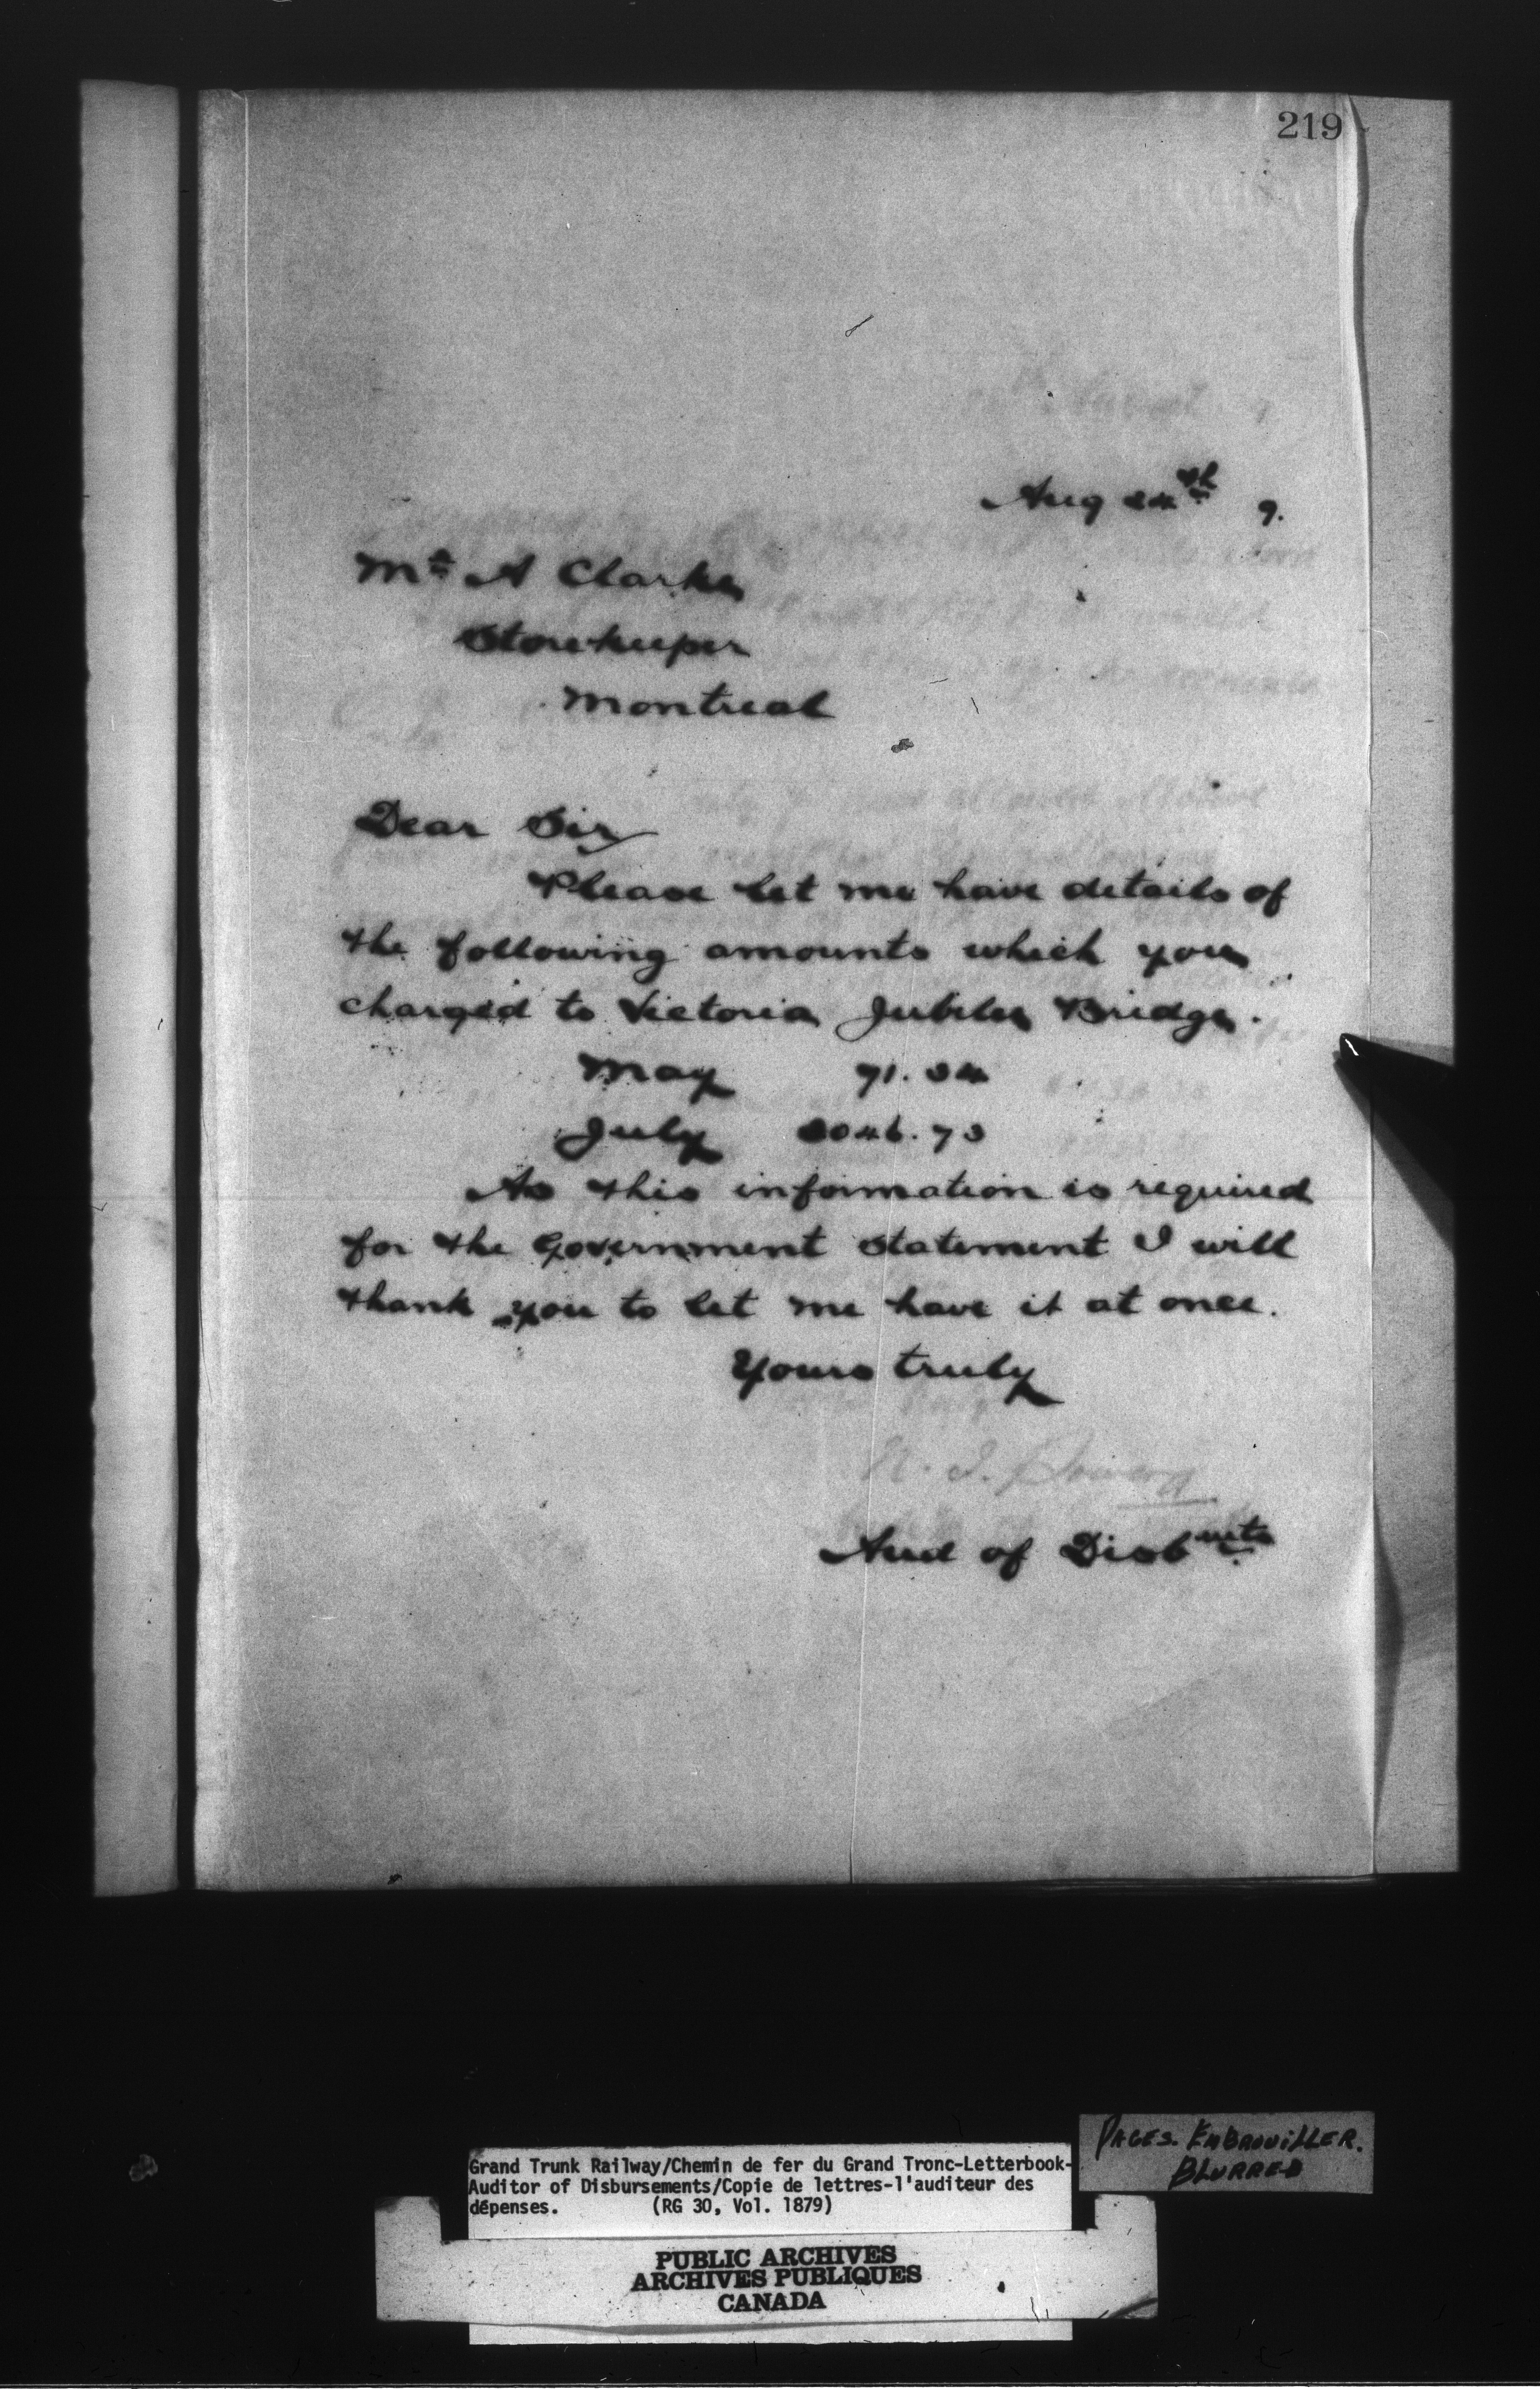 219
Aug 24th 9.
Mr A Clarke
Storekeeper
Montreal
Dear Sir
Please let me have details of
the following amounts which you
charged to Victoria Jubilee Bridge.
May 71.34
July
As this information is required
for the Government statement I will
thank you to let me have it at once.
Yours truly
Aud of Disbmts
PAGES. EMBROUILLER.
BLURRED
Grand Trunk Railway/Chemin de fer du Grand Tronc-Letterbook-
Auditor of Disbursements/Copie de lettres-l'auditeur des
dépenses. (RG 30, Vol. 1879)
PUBLIC ARCHIVES
ARCHIVES PUBLIQUES
CANADA